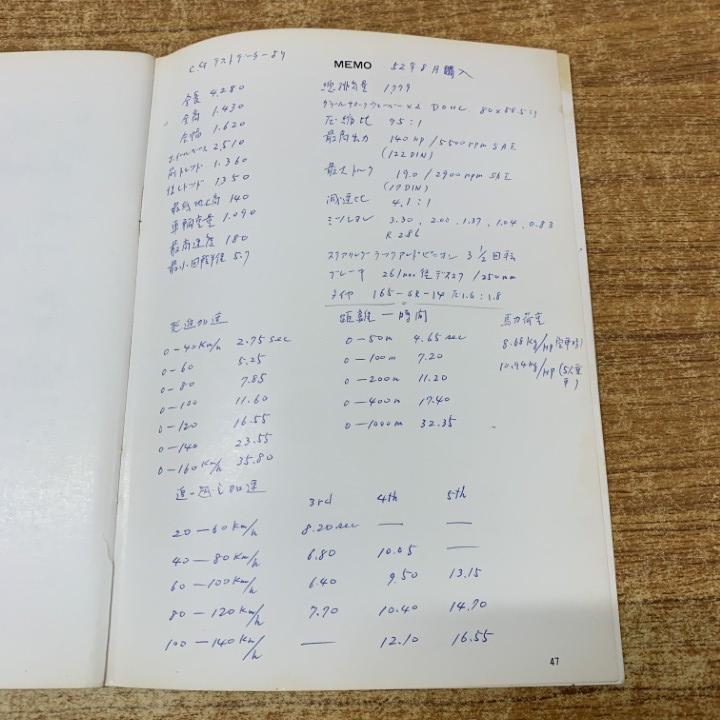 C.G テストデーターより
MEMO 52年8月購入
全長 4.280
全高 1.430
全幅 1.620
ホイールベース 2.510
前トレッド 1.360
後トレッド 1350
最低地上高 140
車輌重量 1.090
最高速度 180
最小回転半径 5.7
総排気量 1999
×2 DOHC 80×88.5
圧縮比 9.5:1
最高出力 140 HP / 5500 rpm SAE
(122 DIN)
最大トルク 19.0 / 2900 rpm SAE
(17 DIN)
減速比 4.1:1
ミッション 3.30, 2.00, 1.37, 1.04, 0.83
R 286
ステアリング ラックアンドピニオン 3 1/2 回転
ブレーキ 261mm径ディスク / 250mm
タイヤ 165-SR-14 F1.6:1.8
発進加速
0-40Km/h 2.75 sec
0-60 5.25
0-80 7.85
0-100 11.60
0-120 16.55
0-140 23.55
0-160Km/h 35.80
距離-時間
0-50m 4.65 sec
0-100m 7.20
0-200m 11.20
0-400m 17.40
0-1000m 32.35
馬力荷重
8.68 kg/HP (空車時)
10.94 kg/HP (5人乗車)
追い越し加速
3rd 4th 5th
20-60Km/h 8.20 sec — —
40-80Km/h 6.80 10.05 —
60-100Km/h 6.40 9.50 13.15
80-120Km/h 7.70 10.40 14.70
100-140Km/h — 12.10 16.55
47